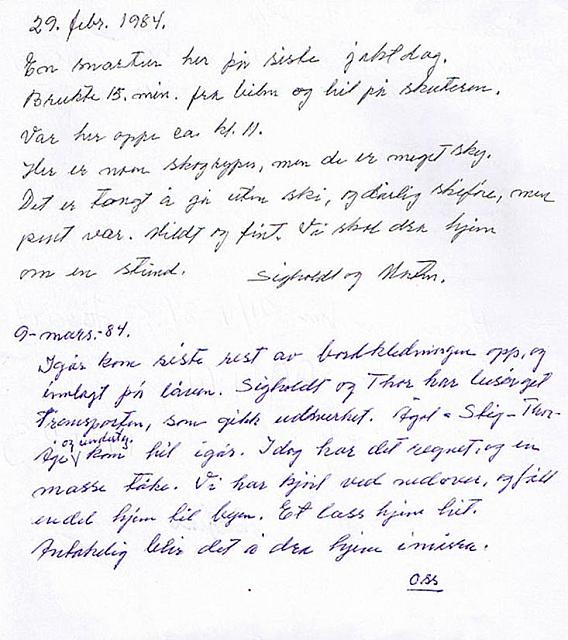 29. febr. 1984.
En snartur her på siste jaktdag.
Brukte 15. min. fra bilen og hit på skuteren.
Var her oppe ca. kl. 11.
Her er noen skogryper, men de er meget sky.
Det er tungt å gå uten ski, og dårlig skiføre, men
pent vær. Mildt og fint. Vi skal dra hjem
om en stund. Sigholdt og
9-mars.-84.
Igår kom siste rest av bordkledningen opp, og
innlagt på låven. Sigholdt og Thor har besørget
transporten, som gikk udmerket. Ågot - Skip - Thor-
Åge og undertg. kom hit igår. Idag har det regnet, og en
masse tåke. Vi har kjørt ved nedover, og fått
endel hjem til byen. Et lass hjem hit.
Antakelig blir det å dra hjem imåra.
OSS